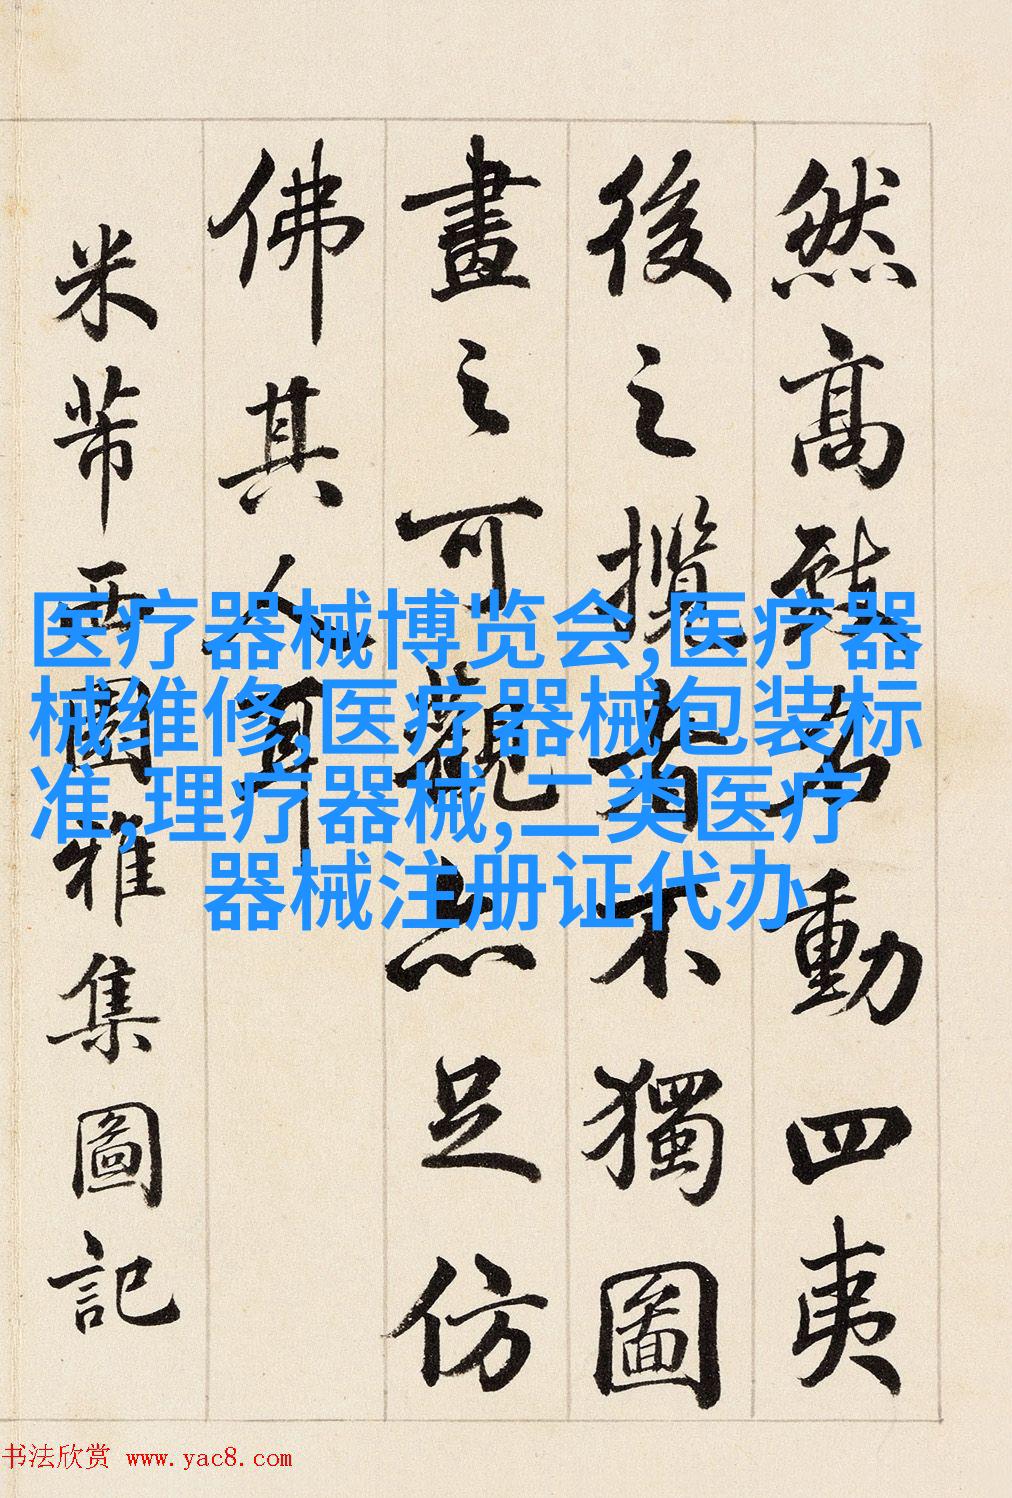 然高致名動四夷
後之攬者不獨圖
畫之可觀亦足仿
佛其人耳
米芾西園雅集圖記
医疗器械博览会,医疗器
械维修,医疗器械包装标
准,理疗器械,二类医疗
器械注册证代办
书法欣赏 www.yac8.com